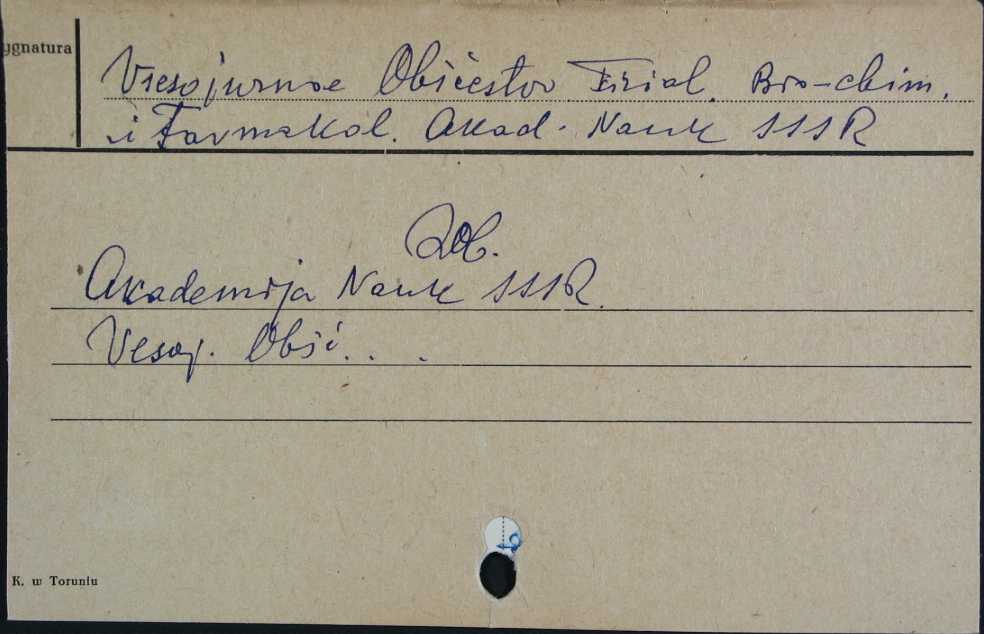 ygnatura
Vsesojuznoe Obščestvo Fiziol. Bio-chim.
i Farmakol. Akad. Nauk SSSR
Zob.
Akademija Nauk SSSR.
Vesoj. Obšč. . .
K. w Toruniu